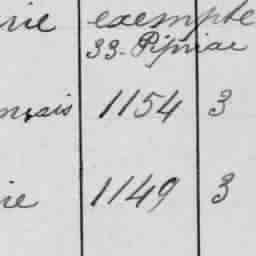 rie exempte
33. Pipriac
nçais 1154 3
ie 1149 3